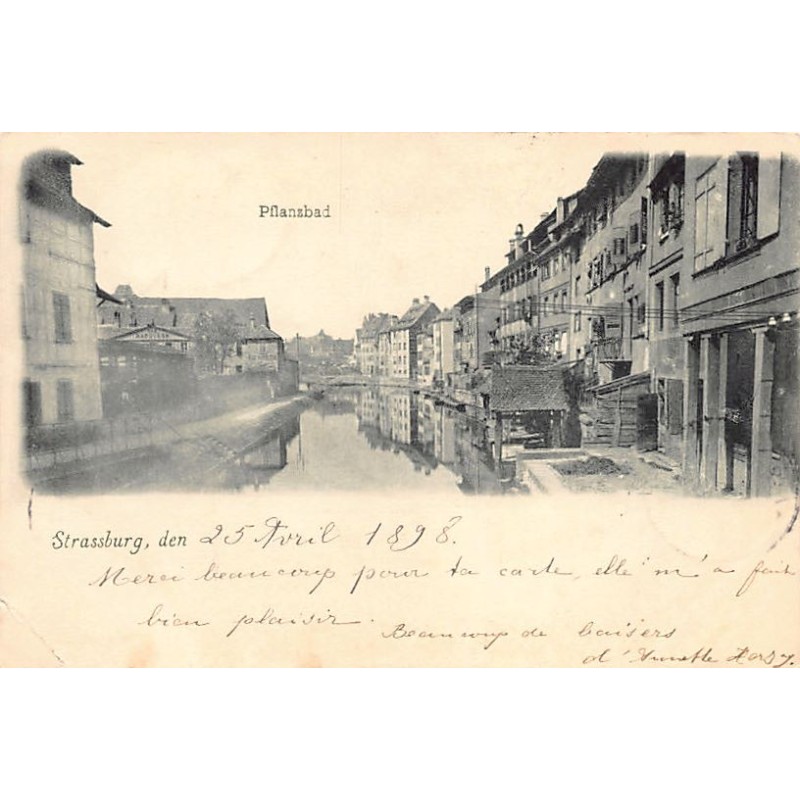 Pflanzbad
Strassburg, den 25 Avril 1898.
Merci beaucoup pour ta carte, elle m'a fait
bien plaisir.
Beaucoup de baisers
d'